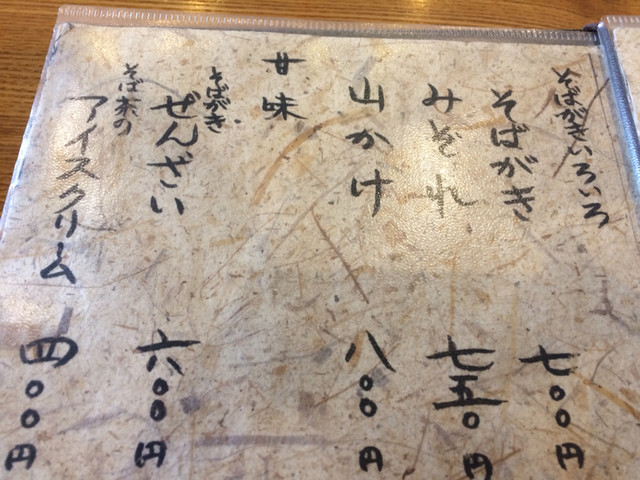 そばがきいろいろ
そばがき 七〇〇円
みぞれ 七五〇円
山かけ 八〇〇円
甘味
そばがき
ぜんざい 六〇〇円
そば茶の
アイスクリーム 四〇〇円